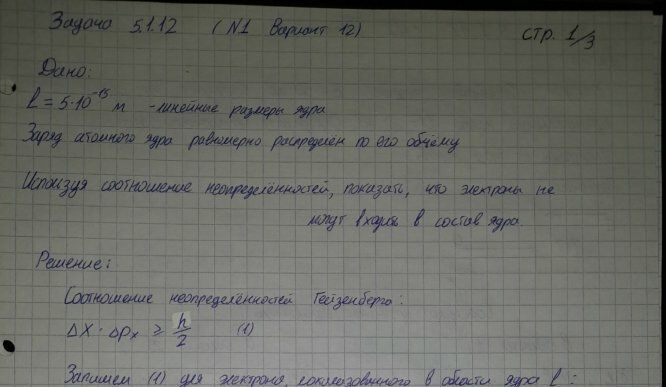 Задача 5.1.12 (N1 Вариант 12) стр. 1/3
Дано:
l = 5·10⁻¹⁵ м - линейные размеры ядра
Заряд атомного ядра равномерно распределён по его объёму
Используя соотношение неопределённостей, показать, что электроны не
могут входить в состав ядра.
Решение:
Соотношение неопределённостей Гейзенберга:
ΔX · Δpₓ ≥ ħ/2 (1)
Запишем (1) для электрона, локализованного в области ядра l: